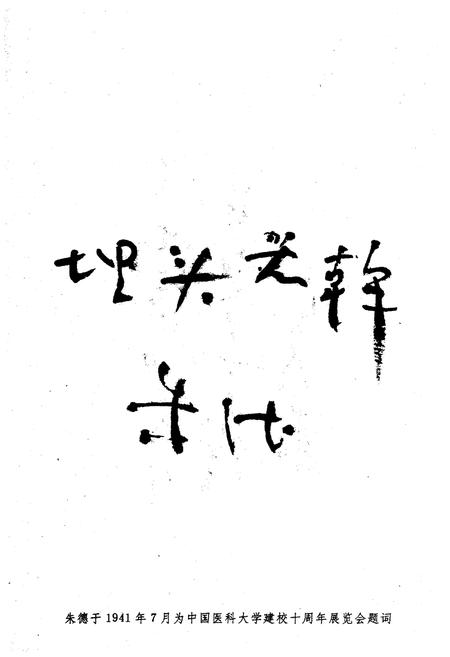 埋头苦幹
朱德
朱德于1941年7月为中国医科大学建校十周年展览会题词